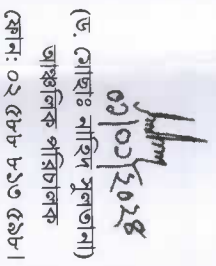 ০১|০১|২০২৪
(ড. মোছাঃ নাহিদ সুলতানা)
আঞ্চলিক পরিচালক
ফোন: ০২ ৫৮৮ ৮৯৩ ৫৯৮।